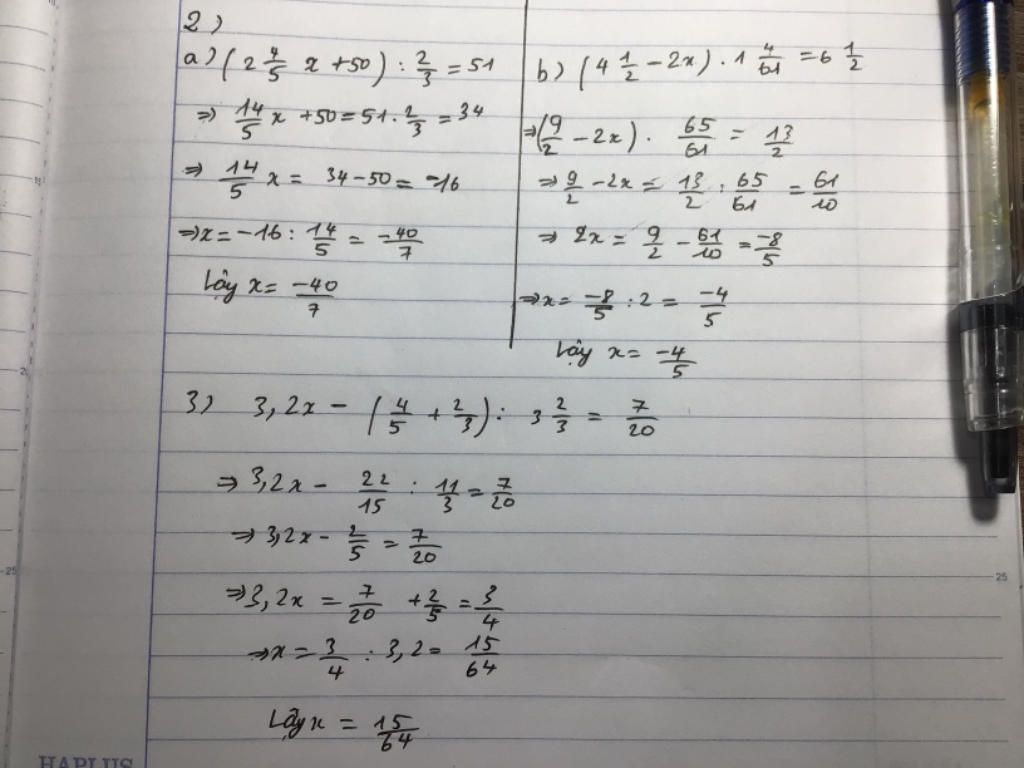 2)
a) (2 4/5 x + 50) : 2/3 = 51
⇒ 14/5 x + 50 = 51 . 2/3 = 34
⇒ 14/5 x = 34 - 50 = -16
⇒ x = -16 : 14/5 = -40/7
Vậy x = -40/7
b) (4 1/2 - 2x) . 1 4/61 = 6 1/2
⇒ (9/2 - 2x) . 65/61 = 13/2
⇒ 9/2 - 2x = 13/2 : 65/61 = 61/10
⇒ 2x = 9/2 - 61/10 = -8/5
⇒ x = -8/5 : 2 = -4/5
Vậy x = -4/5
3) 3,2x - (4/5 + 2/3) : 3 2/3 = 7/20
⇒ 3,2x - 22/15 : 11/3 = 7/20
⇒ 3,2x - 2/5 = 7/20
⇒ 3,2x = 7/20 + 2/5 = 3/4
⇒ x = 3/4 : 3,2 = 15/64
Vậy x = 15/64
25
25
HAPLUS